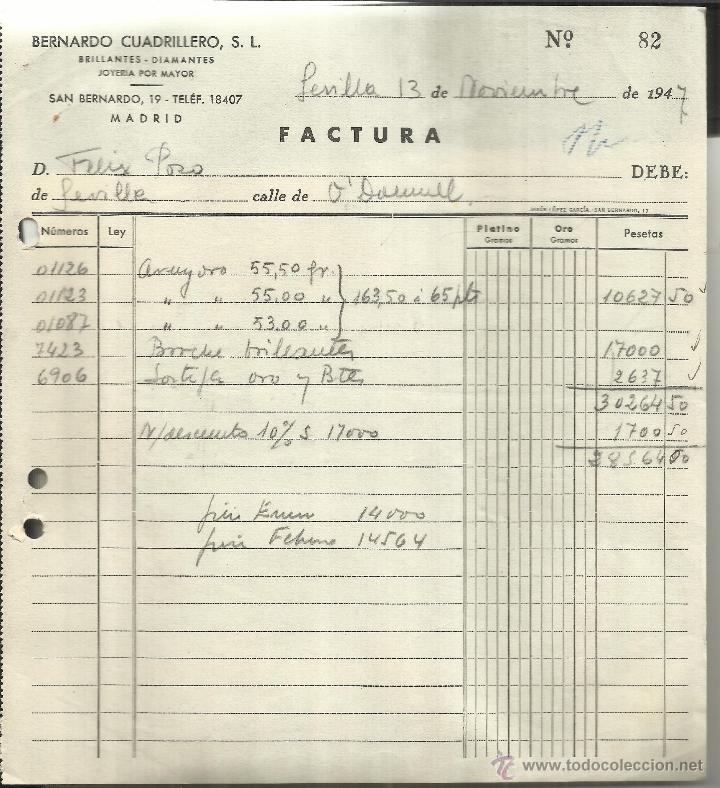 BERNARDO CUADRILLERO, S. L.
BRILLANTES - DIAMANTES
JOYERIA POR MAYOR
SAN BERNARDO, 19 - TELÉF. 18407
MADRID
Nº 82
Sevilla 13 de Noviembre de 1947
FACTURA
D. Felix Pozo DEBE:
de Sevilla calle de O'Donnell
JESÚS LÓPEZ GARCÍA.-SAN BERNARDO, 17
Números Ley Platino Gramos Oro Gramos Pesetas
01126 oro 55,50 gr.
01123 " " 55.00 " 163,50 á 65 pts 10627 50
01087 " " 53.00 "
7423 Broche brillantes 17000
6906 Sortija oro y Btes 2637
30264 50
N/descuento 10% s 17000 1700 50
28564 00
fin Enero 14000
fin Febrero 14564
© www.todocoleccion.net